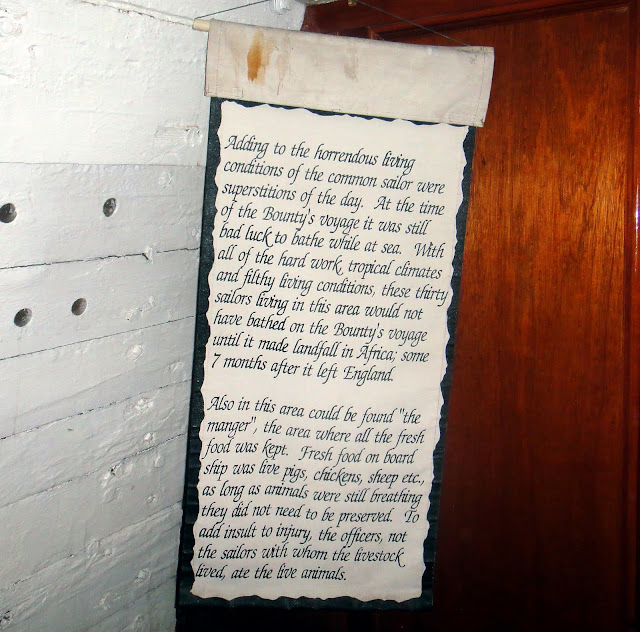 Adding to the horrendous living
conditions of the common sailor were
superstitions of the day. At the time
of the Bounty's voyage it was still
bad luck to bathe while at sea. With
all of the hard work, tropical climates
and filthy living conditions, these thirty
sailors living in this area would not
have bathed on the Bounty's voyage
until it made landfall in Africa; some
7 months after it left England.

Also in this area could be found "the
manger", the area where all the fresh
food was kept. Fresh food on board
ship was live pigs, chickens, sheep etc.,
as long as animals were still breathing
they did not need to be preserved. To
add insult to injury, the officers, not
the sailors with whom the livestock
lived, ate the live animals.